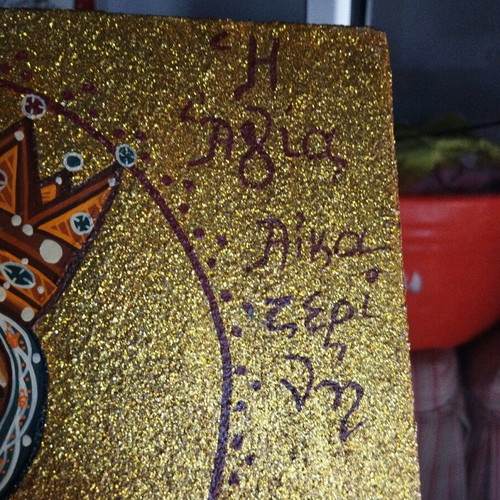 Ἡ
Ἁγία
Αἰκα
τερί
νη